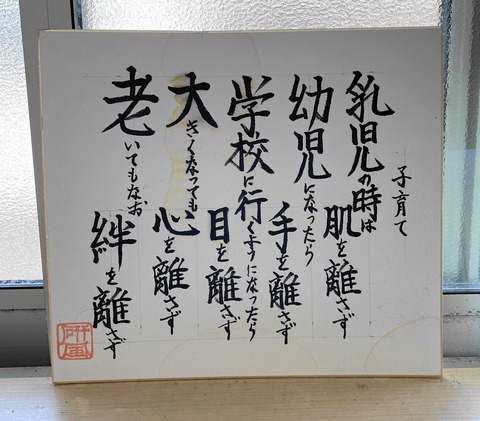 子育て
乳児の時は肌を離さず
幼児になったら手を離さず
学校に行くようになったら目を離さず
大きくなっても心を離さず
老いてもなお絆を離さず